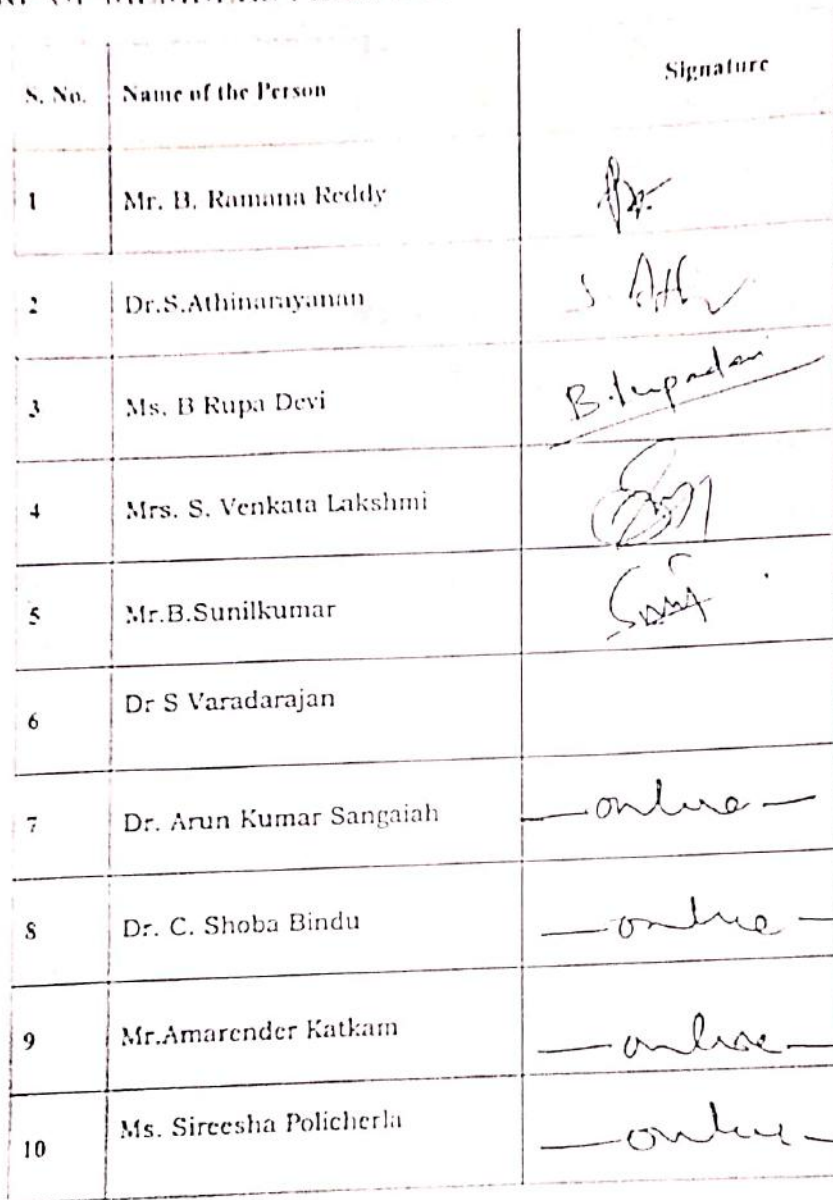 S. No. Name of the Person Signature
1 Mr. B. Ramana Reddy
2 Dr.S.Athinarayanan S. Ath
3 Ms. B Rupa Devi B. Rupadevi
4 Mrs. S. Venkata Lakshmi
5 Mr.B.Sunilkumar
6 Dr S Varadarajan
7 Dr. Arun Kumar Sangaiah — online —
8 Dr. C. Shoba Bindu — online —
9 Mr.Amarender Katkam — online —
10 Ms. Sireesha Policherla — online —